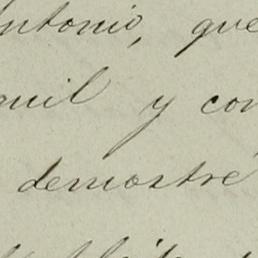 Antonio, que
quil y con
demostré